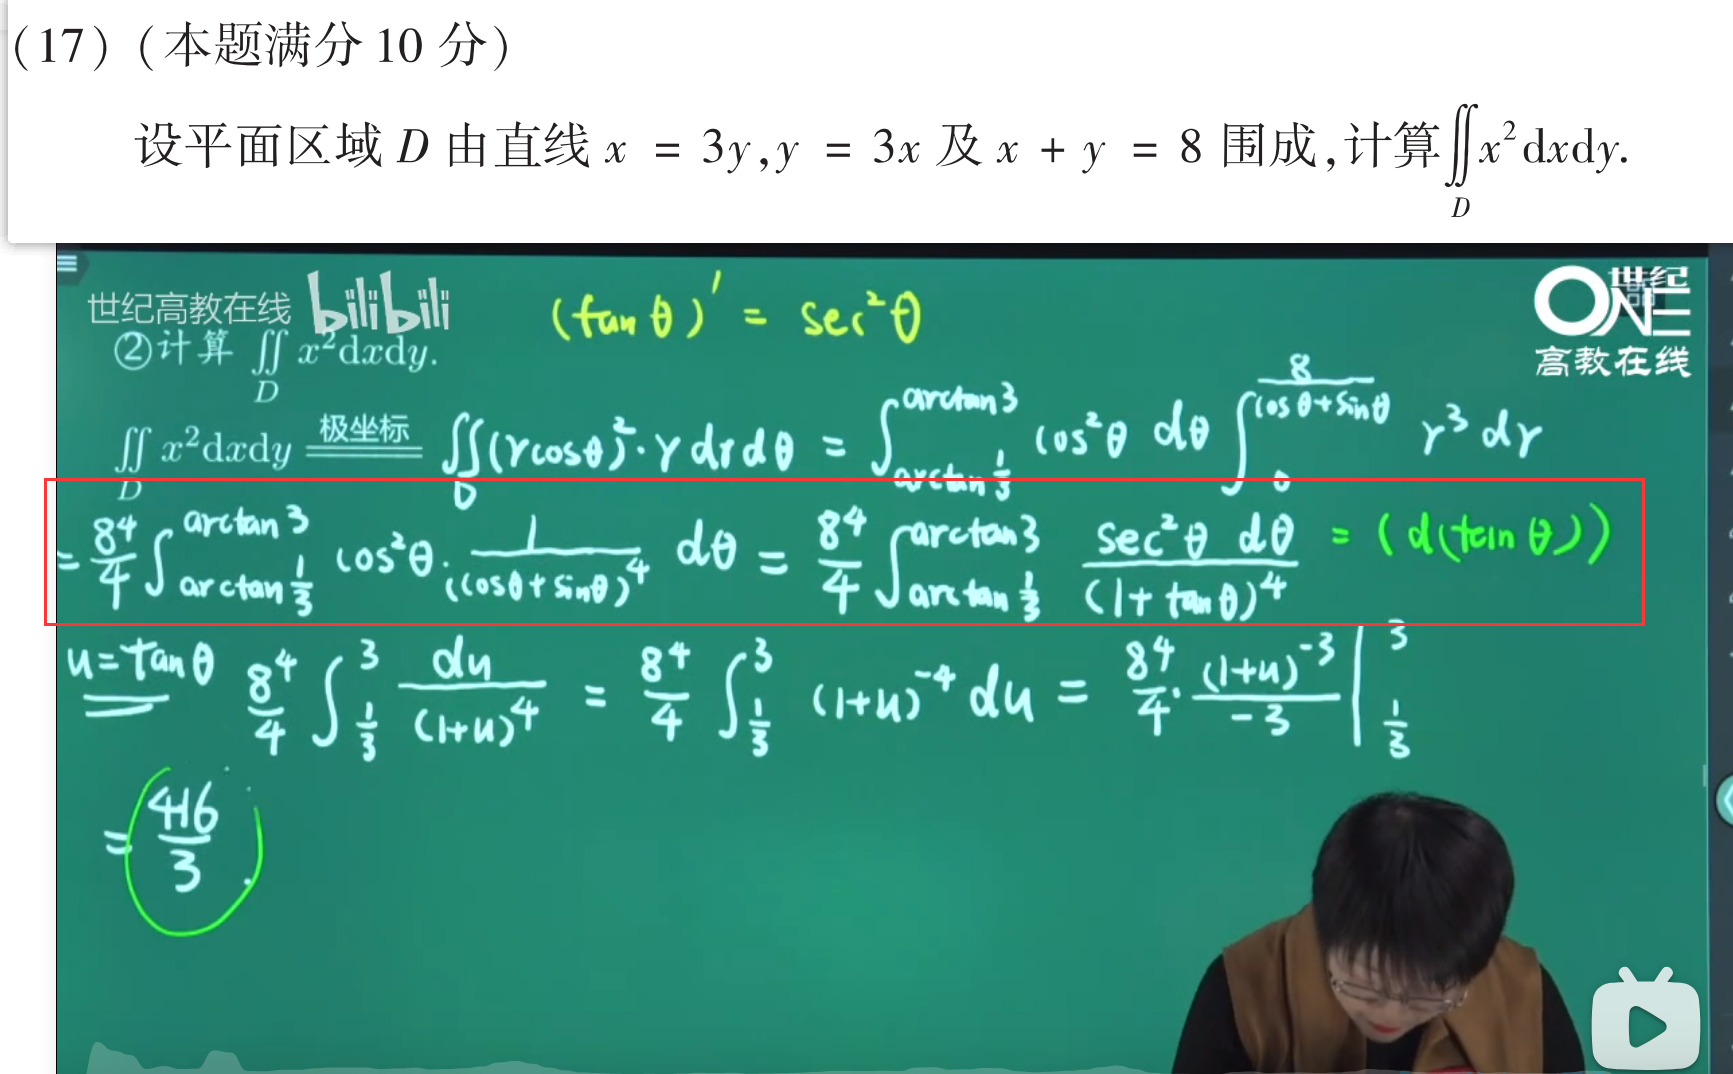 (17) (本题满分 10 分)
设平面区域 D 由直线 x = 3y, y = 3x 及 x + y = 8 围成,计算∬_D x²dxdy.
世纪高教在线 bilibili (tan θ)' = sec²θ
世纪 ONE 高教在线
②计算 ∬_D x²dxdy.
∬_D x²dxdy 极坐标 ∬_D (rcosθ)²·r dr dθ = ∫_{arctan 1/3}^{arctan 3} cos²θ dθ ∫_0^{8/(cosθ+sinθ)} r³ dr
= 8⁴/4 ∫_{arctan 1/3}^{arctan 3} cos²θ · 1/(cosθ+sinθ)⁴ dθ = 8⁴/4 ∫_{arctan 1/3}^{arctan 3} sec²θ dθ/(1+tanθ)⁴ = (d(tanθ))
u=tanθ 8⁴/4 ∫_{1/3}^{3} du/(1+u)⁴ = 8⁴/4 ∫_{1/3}^{3} (1+u)⁻⁴ du = 8⁴/4 · (1+u)⁻³/-3 |_{1/3}^{3}
= 416/3.